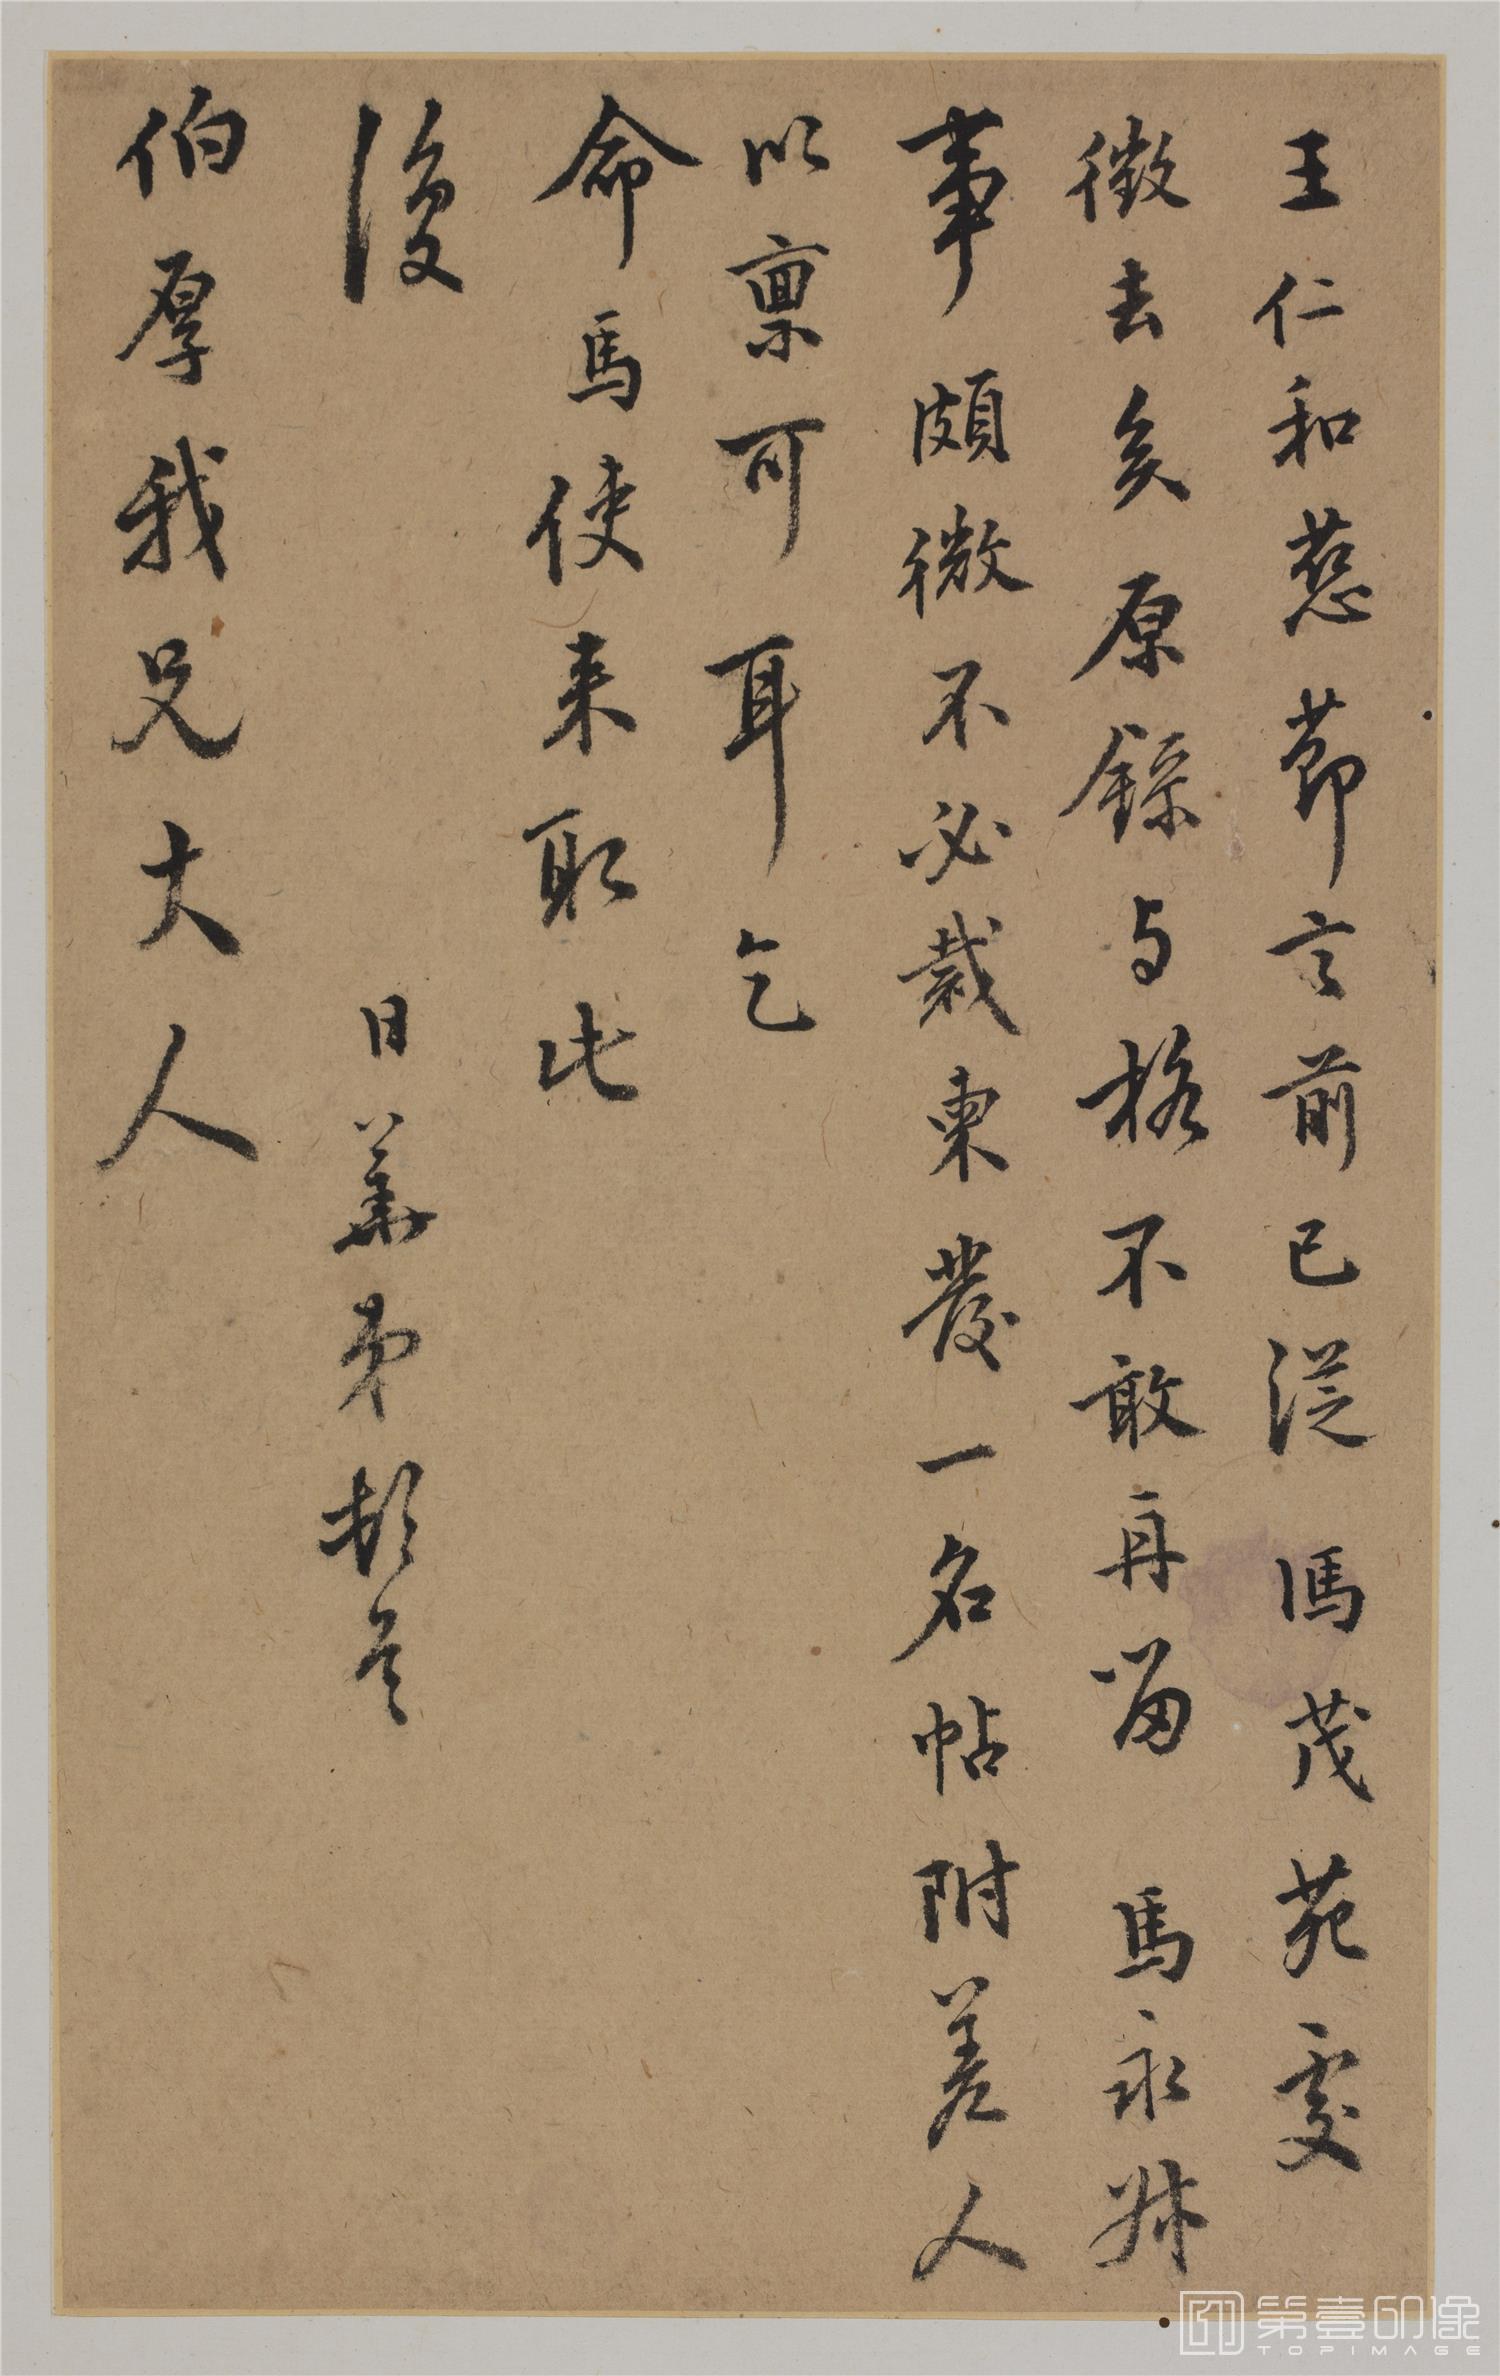 王仁和慈節言前已從馮茂苑處
徵去矣原錄与格不敢再留馬永
事頗微不必裁柬發一名帖附差人
以稟可耳乞
命馬使来取此
復
日華弟頓首
伯厚我兄大人
第壹印像
TOPIMAGE